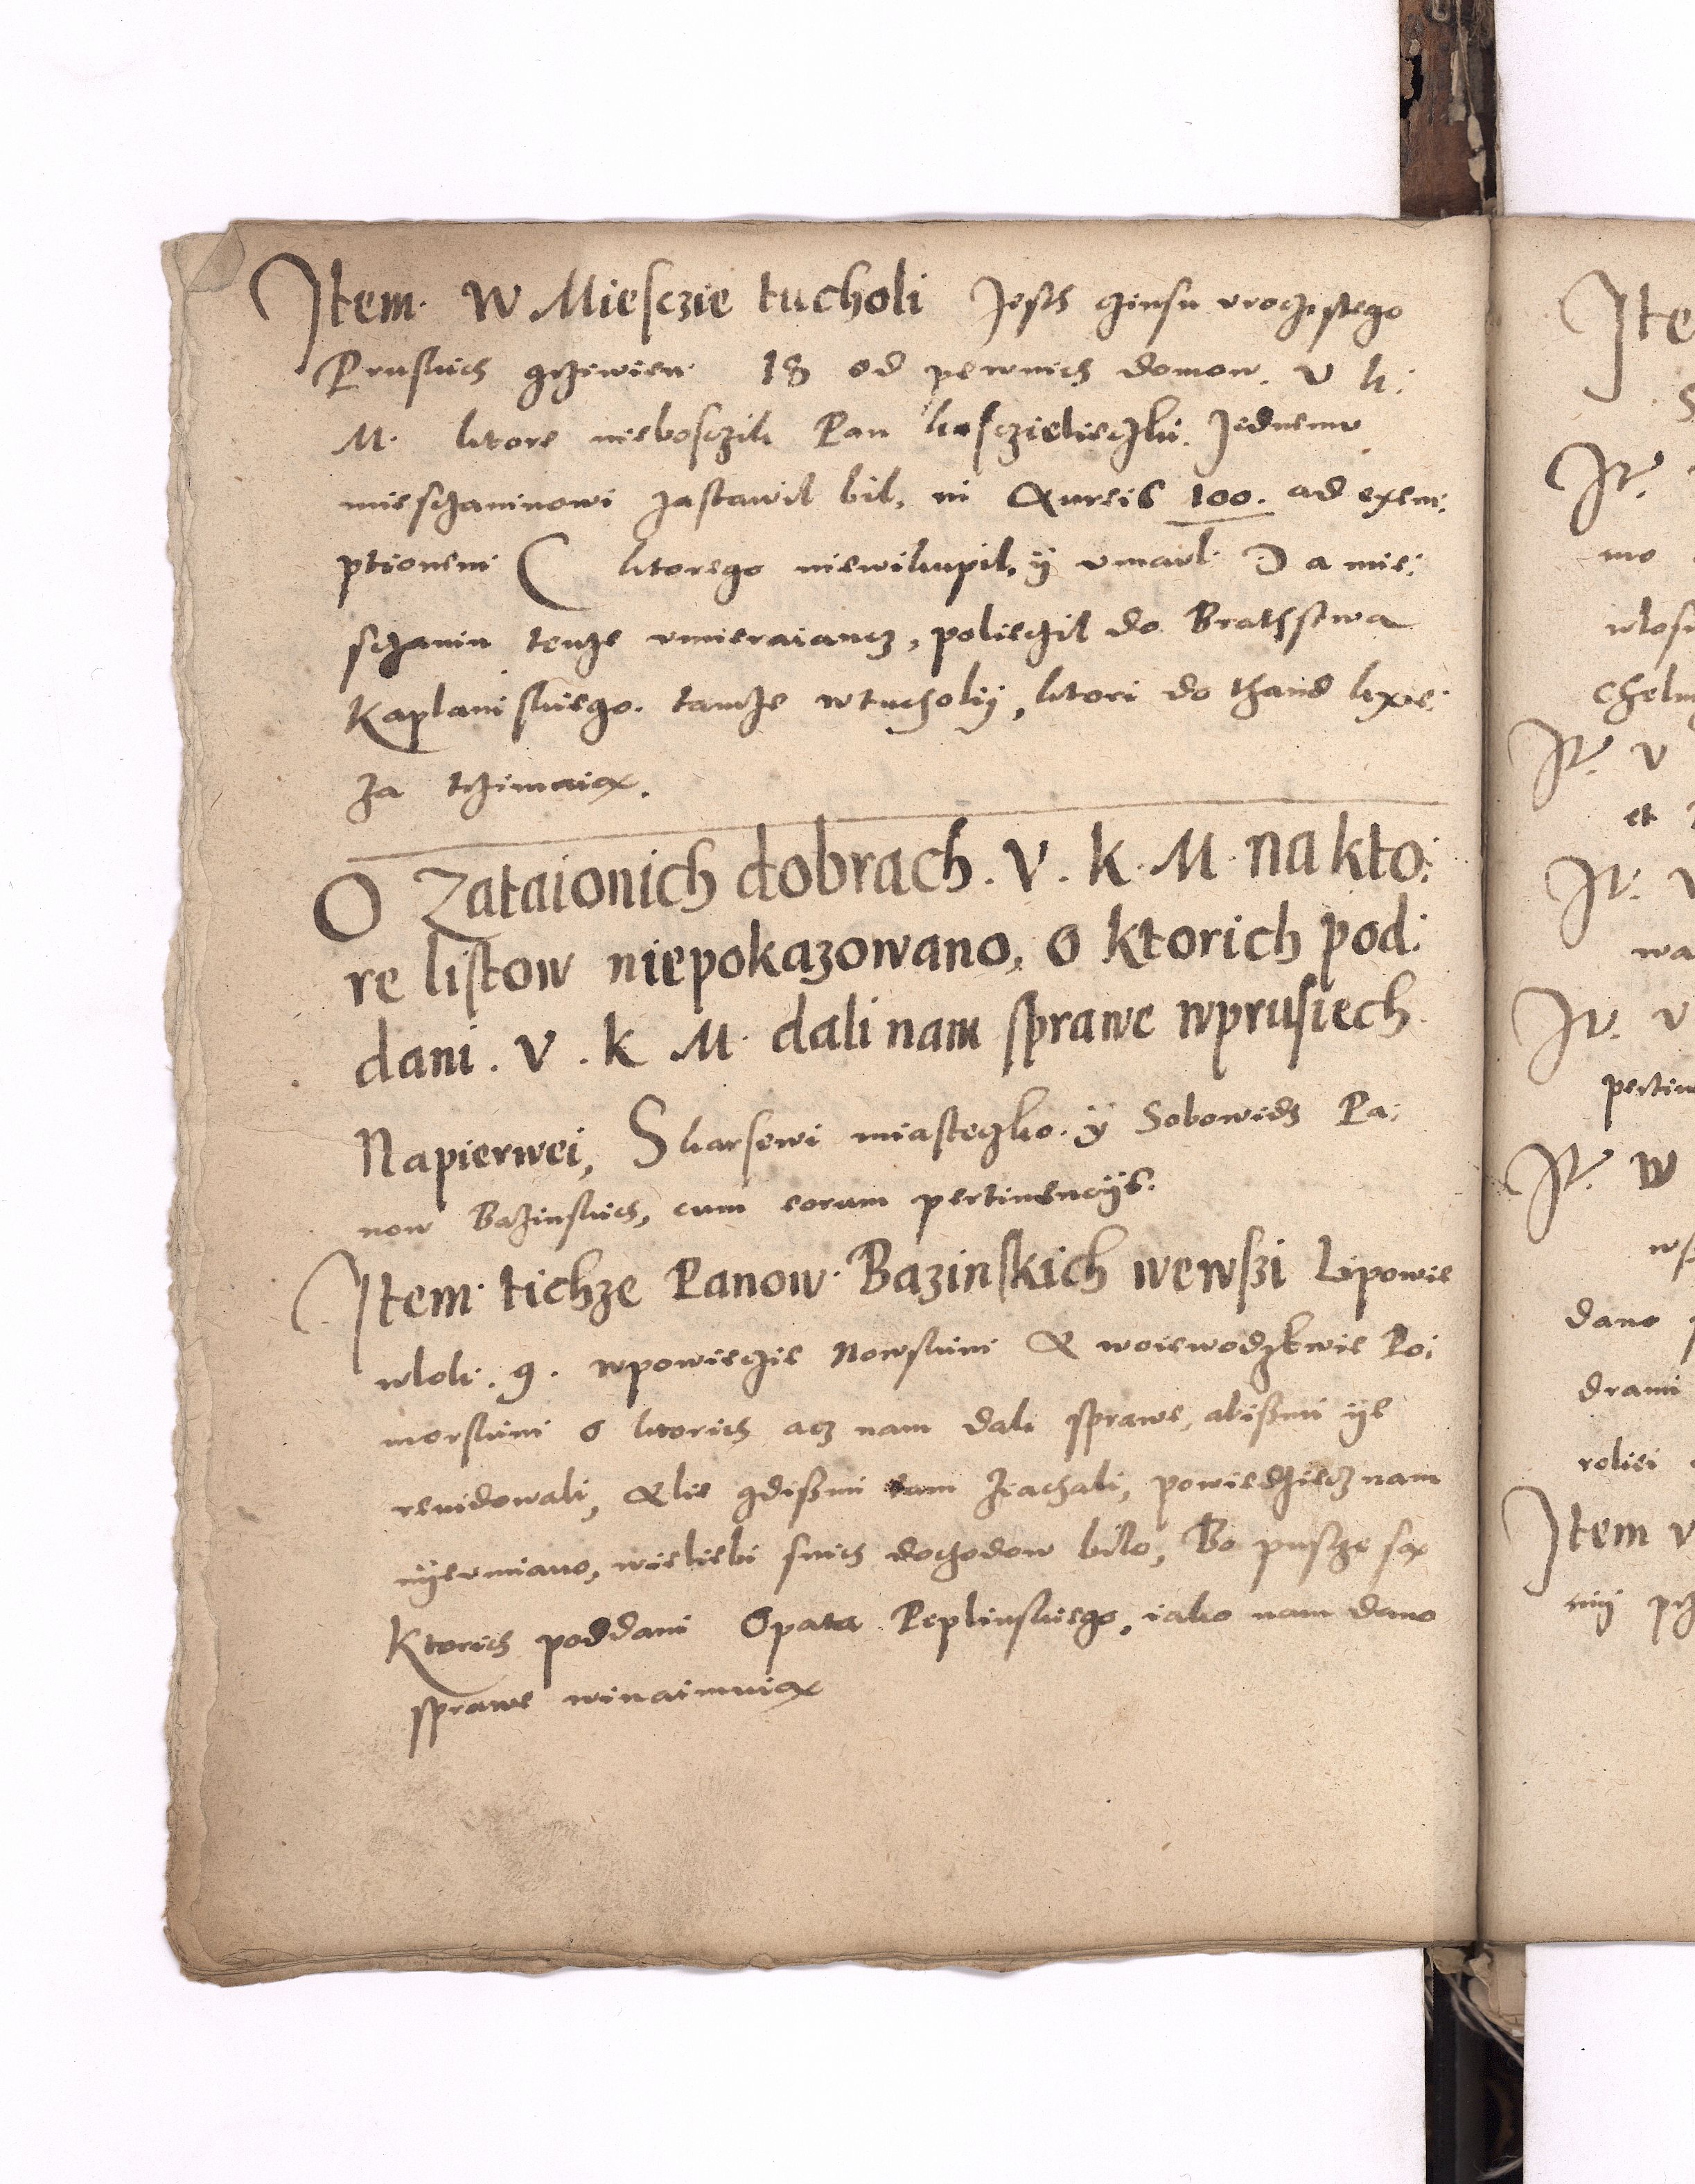 Item. W Miesczie tucholi Jesth czinsu vrocżistego
Pruskich grziwien 18 od pewnich domow. V k:
M. ktore nieboscżik Pan kosczielieczki Jednemu
miesczaninowi zastawil bil, in Aureis 100. ad exem:
ptionem ( ktorego niewikupil, ÿ vmarl ) a mie:
sczanin tenże vmieraiancz, polieczil do Brathstwa
Kaplanskiego. tamże wtucholÿ, ktori do thand kxie:
za trzimaią.
O Zataionich dobrach. V. k. M. na kto:
re listow niepokazowano, o ktorich pod:
dani. V. k M. dali nam sprawe wprusiech
Napierwei, Skarsewi miasteczko. ÿ Sobowidz Pa:
now Bazinskich, cum eorum pertinencÿs.
Item tichze Panow Bazinskich wewszi Lipowie
wlok. 9. wpowieczie Nowskim A woiewodztwie Po:
morskim o ktorich acz nam dali sprawe, abißmi ÿe
reuidowali, Alie gdißmi tam zeachali, powiedziecz nam
nÿevmiano, wieliebi snich dochodow bilo, Bo puscze są
Ktorich poddani Opata Peplinskiego, iako nam dano
sprawe winaimuią
Ite
It.
mo
wlosc
Chelm
It. V
et
It. V
wa
It. V
pertin
It. W
dano
drami
roliei
Item V